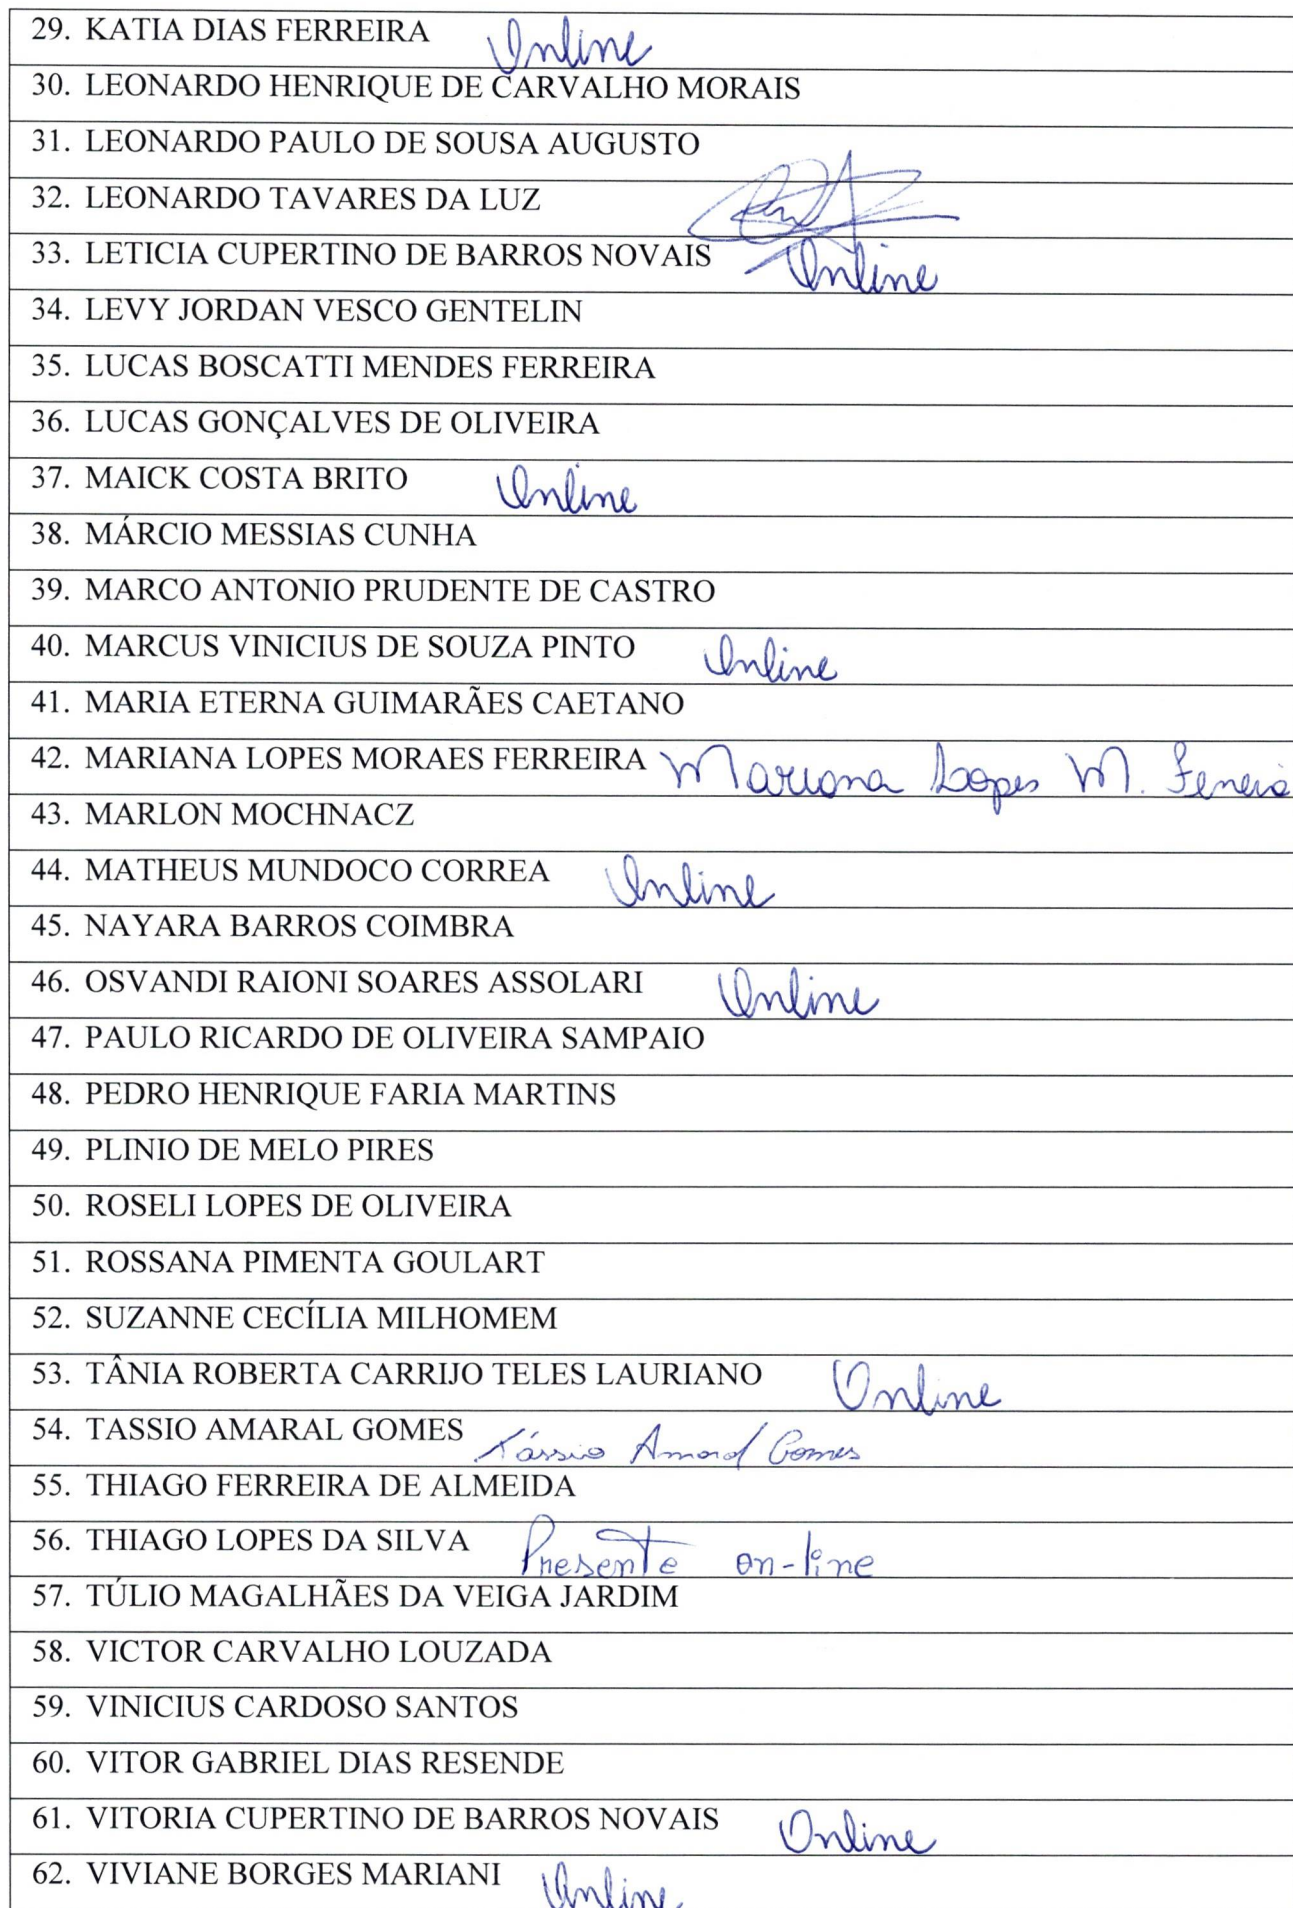 29. KATIA DIAS FERREIRA Online
30. LEONARDO HENRIQUE DE CARVALHO MORAIS
31. LEONARDO PAULO DE SOUSA AUGUSTO
32. LEONARDO TAVARES DA LUZ
33. LETICIA CUPERTINO DE BARROS NOVAIS Online
34. LEVY JORDAN VESCO GENTELIN
35. LUCAS BOSCATTI MENDES FERREIRA
36. LUCAS GONÇALVES DE OLIVEIRA
37. MAICK COSTA BRITO Online
38. MÁRCIO MESSIAS CUNHA
39. MARCO ANTONIO PRUDENTE DE CASTRO
40. MARCUS VINICIUS DE SOUZA PINTO Online
41. MARIA ETERNA GUIMARÃES CAETANO
42. MARIANA LOPES MORAES FERREIRA Mariana Lopes M. Ferreira
43. MARLON MOCHNACZ
44. MATHEUS MUNDOCO CORREA Online
45. NAYARA BARROS COIMBRA
46. OSVANDI RAIONI SOARES ASSOLARI Online
47. PAULO RICARDO DE OLIVEIRA SAMPAIO
48. PEDRO HENRIQUE FARIA MARTINS
49. PLINIO DE MELO PIRES
50. ROSELI LOPES DE OLIVEIRA
51. ROSSANA PIMENTA GOULART
52. SUZANNE CECÍLIA MILHOMEM
53. TÂNIA ROBERTA CARRIJO TELES LAURIANO Online
54. TASSIO AMARAL GOMES Tássio Amaral Gomes
55. THIAGO FERREIRA DE ALMEIDA
56. THIAGO LOPES DA SILVA Presente on-line
57. TÚLIO MAGALHÃES DA VEIGA JARDIM
58. VICTOR CARVALHO LOUZADA
59. VINICIUS CARDOSO SANTOS
60. VITOR GABRIEL DIAS RESENDE
61. VITORIA CUPERTINO DE BARROS NOVAIS Online
62. VIVIANE BORGES MARIANI Online